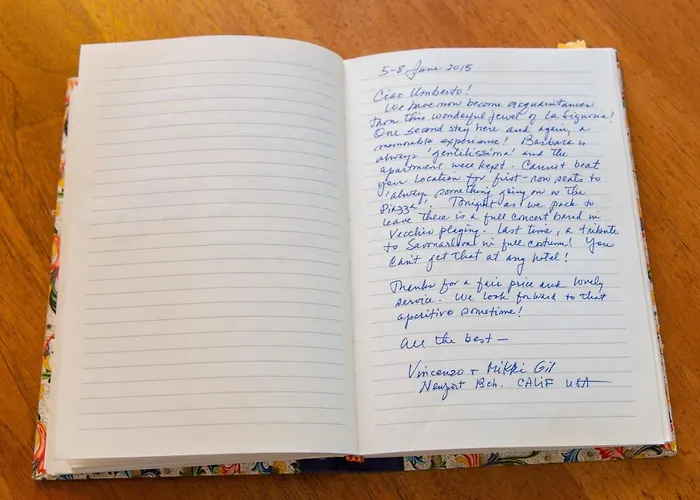 5-8 June 2015
Ciao Umberto!
We have now become acquaintances
from this wonderful jewel of La Signoria!
One second stay here and again, a
memorable experience! Barbara is
always 'gentilissima' and the
apartment well kept. Cannot beat
your location for first-row seats to
'always something going on in the
Piazza'! Tonight as we pack to
leave there is a full concert band in
Vecchio playing. Last time, a tribute
to Savonarola in full costume! You
can't get that at any hotel!
Thanks for a fair price and lovely
service. We look forward to that
aperitivo sometime!
All the best—
Vincenzo + Mikki Gil
Newport Bch. CALIF USA